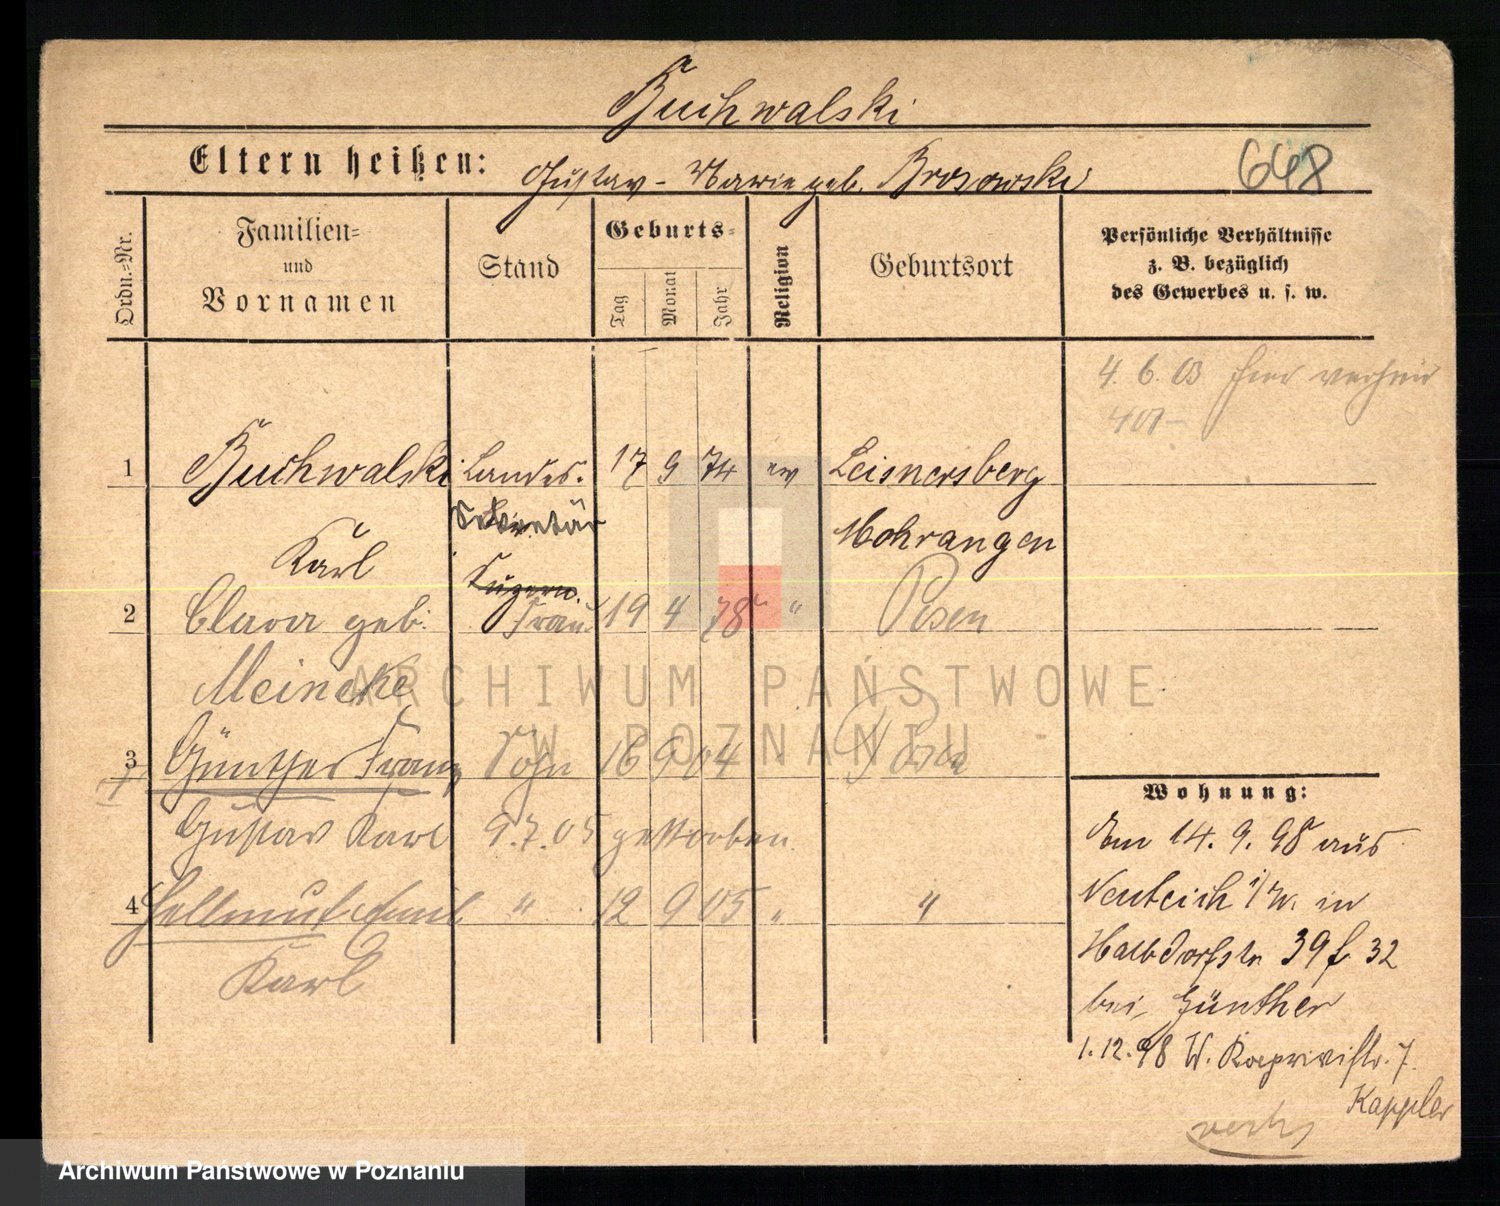 Buchwalski
Eltern heißen: Gustav - Marie geb. Brosowski
648
Ordn.=Nr.
Familien=
und
Vornamen
Stand
Geburts=
Tag
Monat
Jahr
Religion
Geburtsort
Persönliche Verhältnisse
z. B. bezüglich
des Gewerbes u. s. w.
4. 6. 03 hier
1 Buchwalski Landes. 17 9 74 ev Leisnersberg
Sekretär Mohrangen
Karl
2 Clara geb. Frau 19 4 78 " Posen
Meineke
3 Günther Franz Sohn 16 9 04 Posen
Gustav Karl 9.7.05 gestorben.
4 Hellmut Emil " 12 9 05 " "
Karl
Wohnung:
Am 14. 9. 98 aus
Neuteich i/W. in
Halbdorfstr 39 f. 32
bei Günther
1.12.98 W. Kaprivistr. 7.
Kappler
ARCHIWUM PAŃSTWOWE
W POZNANIU
Archiwum Państwowe w Poznaniu